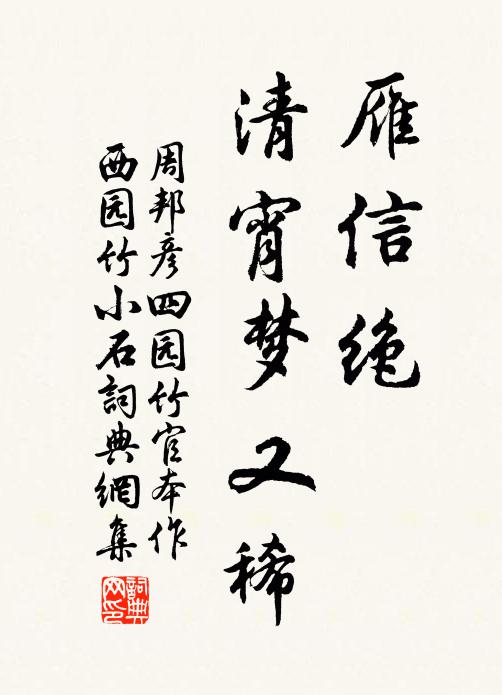 雁信绝
清宵梦又稀
周邦彦四园竹官本作
西园竹小石詞典網集
詞典
网印